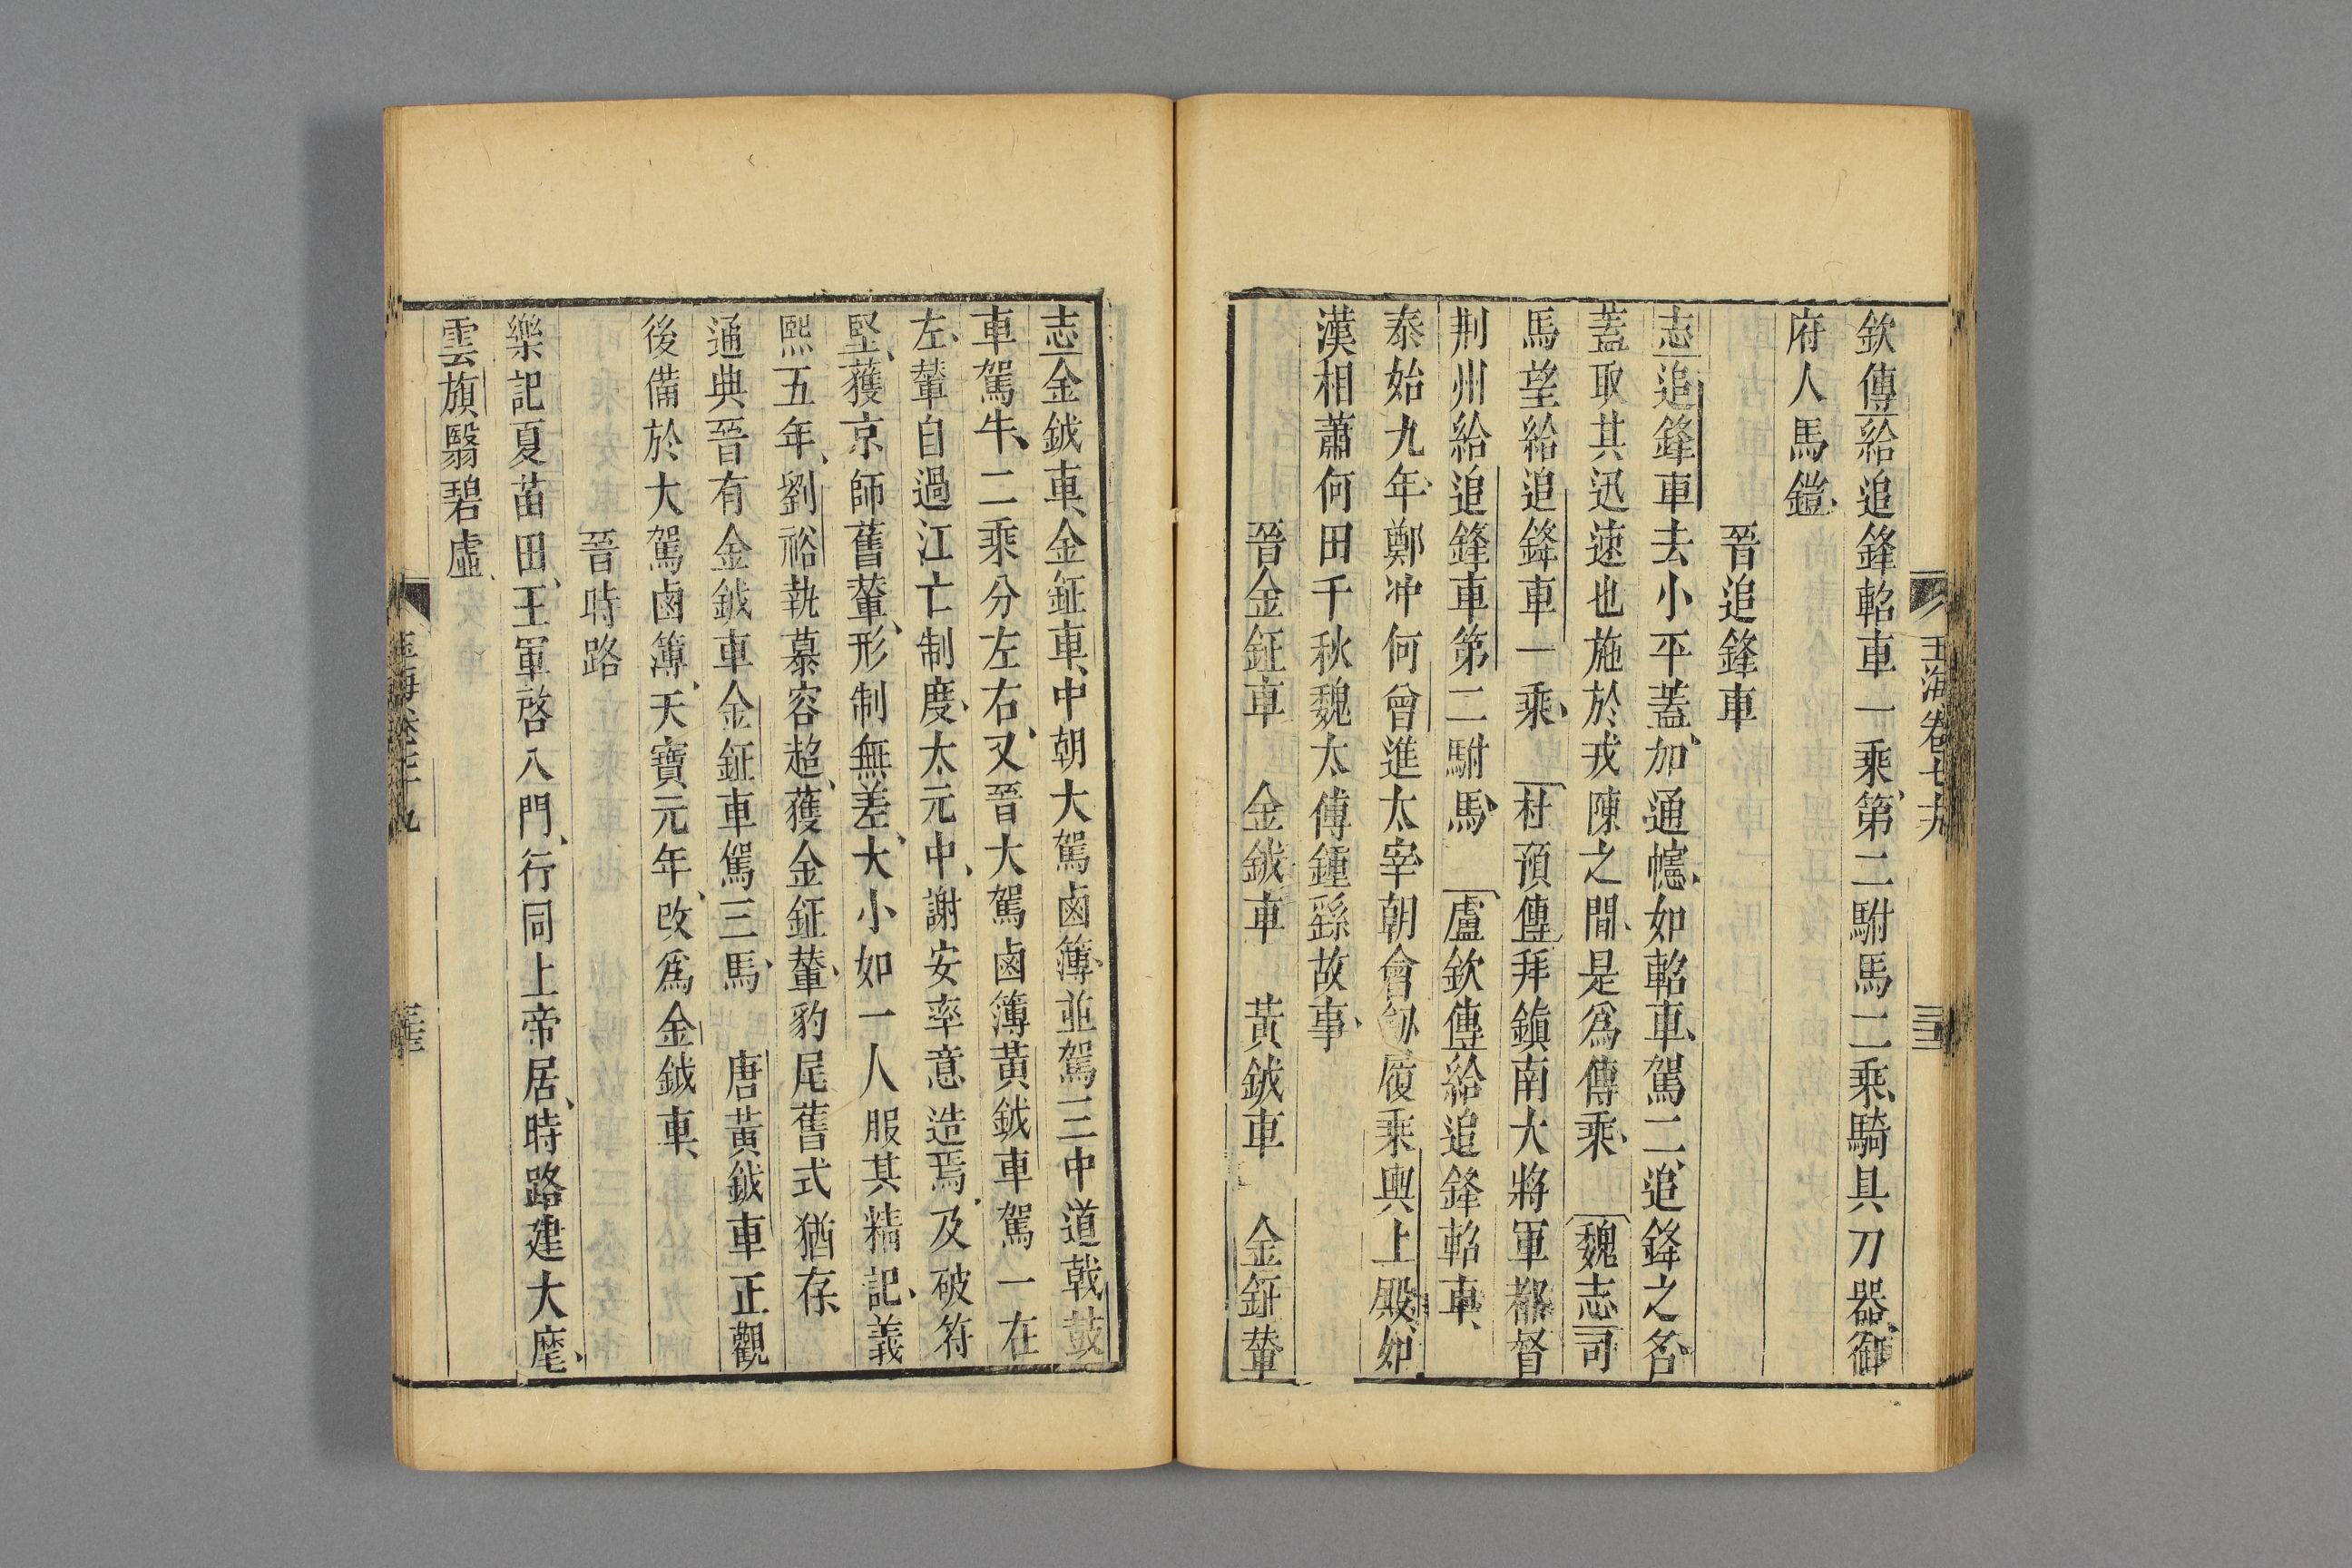 玉海卷七十九
欽傳給追鋒軺車一乘第二駙馬二乘騎具刀器御
府人馬鎧
晉追鋒車
志追鋒車去小平蓋加通幰如軺車駕二追鋒之名
蓋取其迅速也施於戎陳之間是爲傳乘 魏志司
馬望給追鋒車一乘 杜預傳拜鎭南大將軍都督
荆州給追鋒車第二駙馬 盧欽傳給追鋒軺車
泰始九年鄭冲何曾進太宰朝會劒履乘輿上殿如
漢相蕭何田千秋魏太傅鍾繇故事
晉金鉦車 金鉞車 黃鉞車 金鉦輦
志金鉞車金鉦車中朝大駕鹵簿並駕三中道戟鼓
車駕牛二乘分左右又晉大駕鹵簿黃鉞車駕一在
左輦自過江亡制度太元中謝安率意造焉及破符
堅獲京師舊輦形制無差大小如一人服其精記義
熙五年劉裕執慕容超獲金鉦輦豹尾舊式猶存
通典晉有金鉞車金鉦車駕三馬 唐黃鉞車正觀
後備於大駕鹵簿天寶元年改爲金鉞車
晉時路
樂記夏苗田王軍啓八門行同上帝居時路建大麾
雲旗翳碧虛
玉海卷七十九